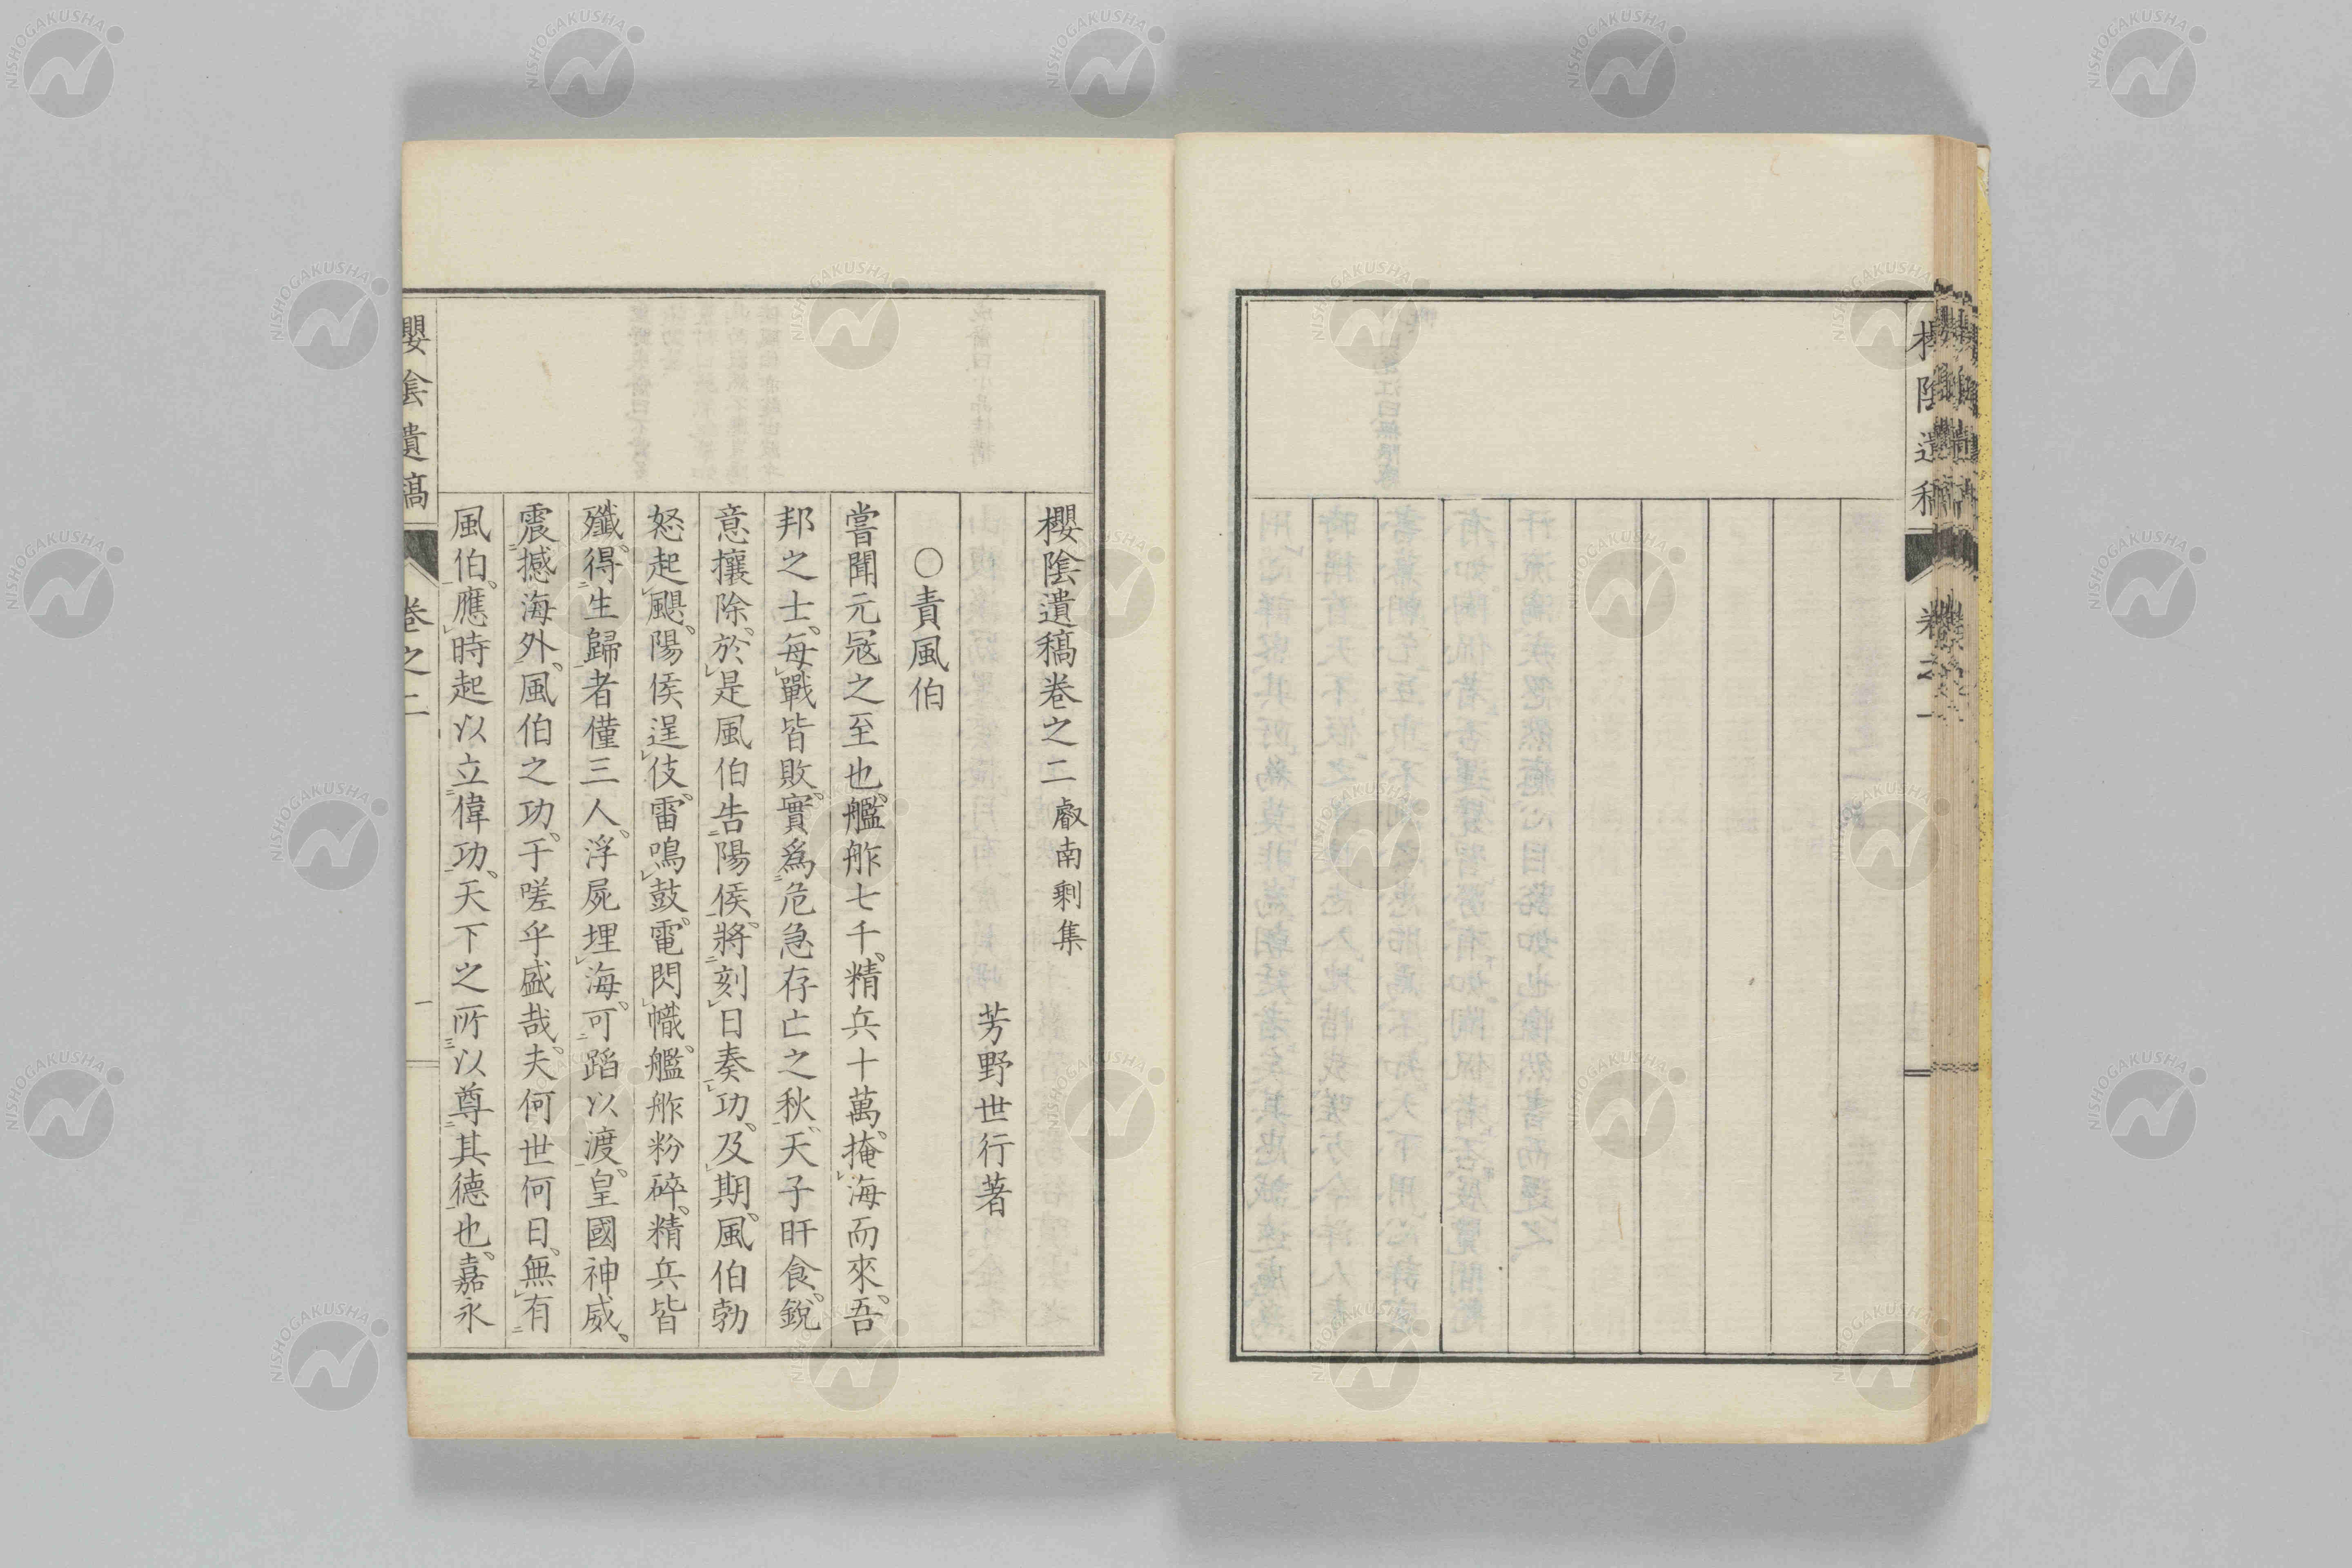 櫻陰遺稿卷之二 叡南剩集
芳野世行著
○責風伯
嘗聞元冦之至也艦舴七千精兵十萬掩海而來吾
邦之士每戰皆敗實爲危急存亡之秋天子旰食銳
意攘除於是風伯告陽侯將刻日奏功及期風伯勃
怒起颶陽侯逞伎雷鳴鼓電閃幟艦舴粉碎精兵皆
殲得生歸者僅三人浮屍埋海可蹈以渡皇國神威
震撼海外風伯之功于嗟乎盛哉夫何世何日無有
風伯應時起以立偉功天下之所以尊其德也嘉永
櫻陰遺稿 卷之二 一
NISHOGAKUSHA